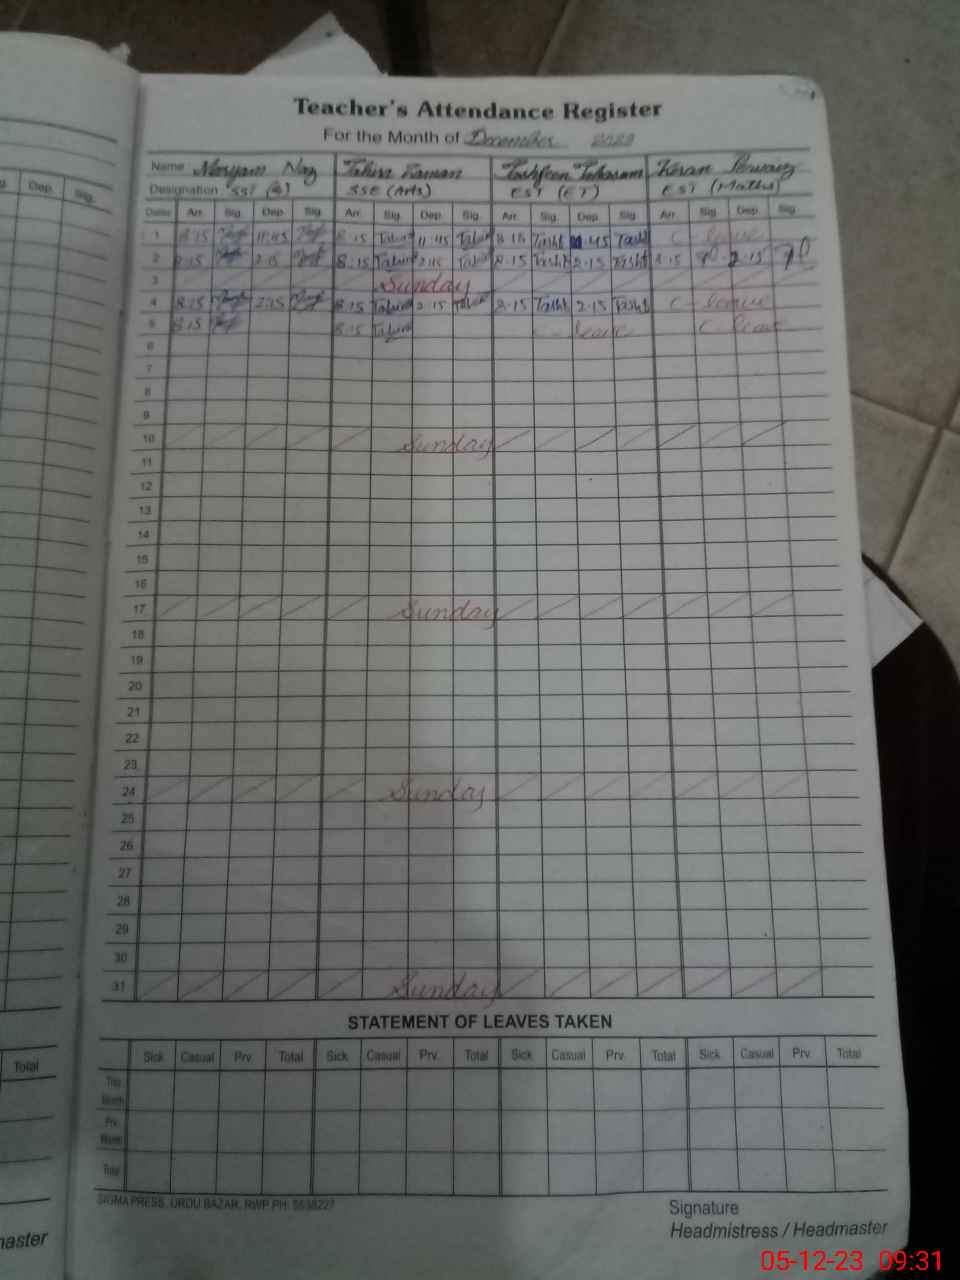 Teacher's Attendance Register
For the Month of December 2023
Dep. Sig.
Name Maryam Naz Tahira Kanwan Tashfeen Tabassum Kiran Perwaiz
Designation SST SSE (Arts) EST (ET) EST (Maths)
Dates Arr. Sig. Dep. Sig. Arr. Sig. Dep. Sig. Arr. Sig. Dep. Sig. Arr. Sig. Dep. Sig.
1 8:15 11:45 8:15 Tahira 11:45 Tahira 8:15 Tashf 11:45 Tashf C-leave
2 8:15 2:15 8:15 Tahira 2:15 Tahira 8:15 Tashf 2:15 Tashf 8:15 2:15
3 Sunday
4 8:15 2:15 8:15 Tahira 2:15 Tahira 8:15 Tashf 2:15 Tashf C-leave
5 8:15 8:15 Tahira C-leave C-leave
6
7
8
9
10 Sunday
11
12
13
14
15
16
17 Sunday
18
19
20
21
22
23
24 Sunday
25
26
27
28
29
30
31 Sunday
STATEMENT OF LEAVES TAKEN
Total
Sick Casual Prv. Total Sick Casual Prv. Total Sick Casual Prv. Total Sick Casual Prv. Total
This Month
Prv. Month
Total
SIGMA PRESS, URDU BAZAR, RWP PH: 5538227
Signature
Headmistress / Headmaster
master
05-12-23 09:31